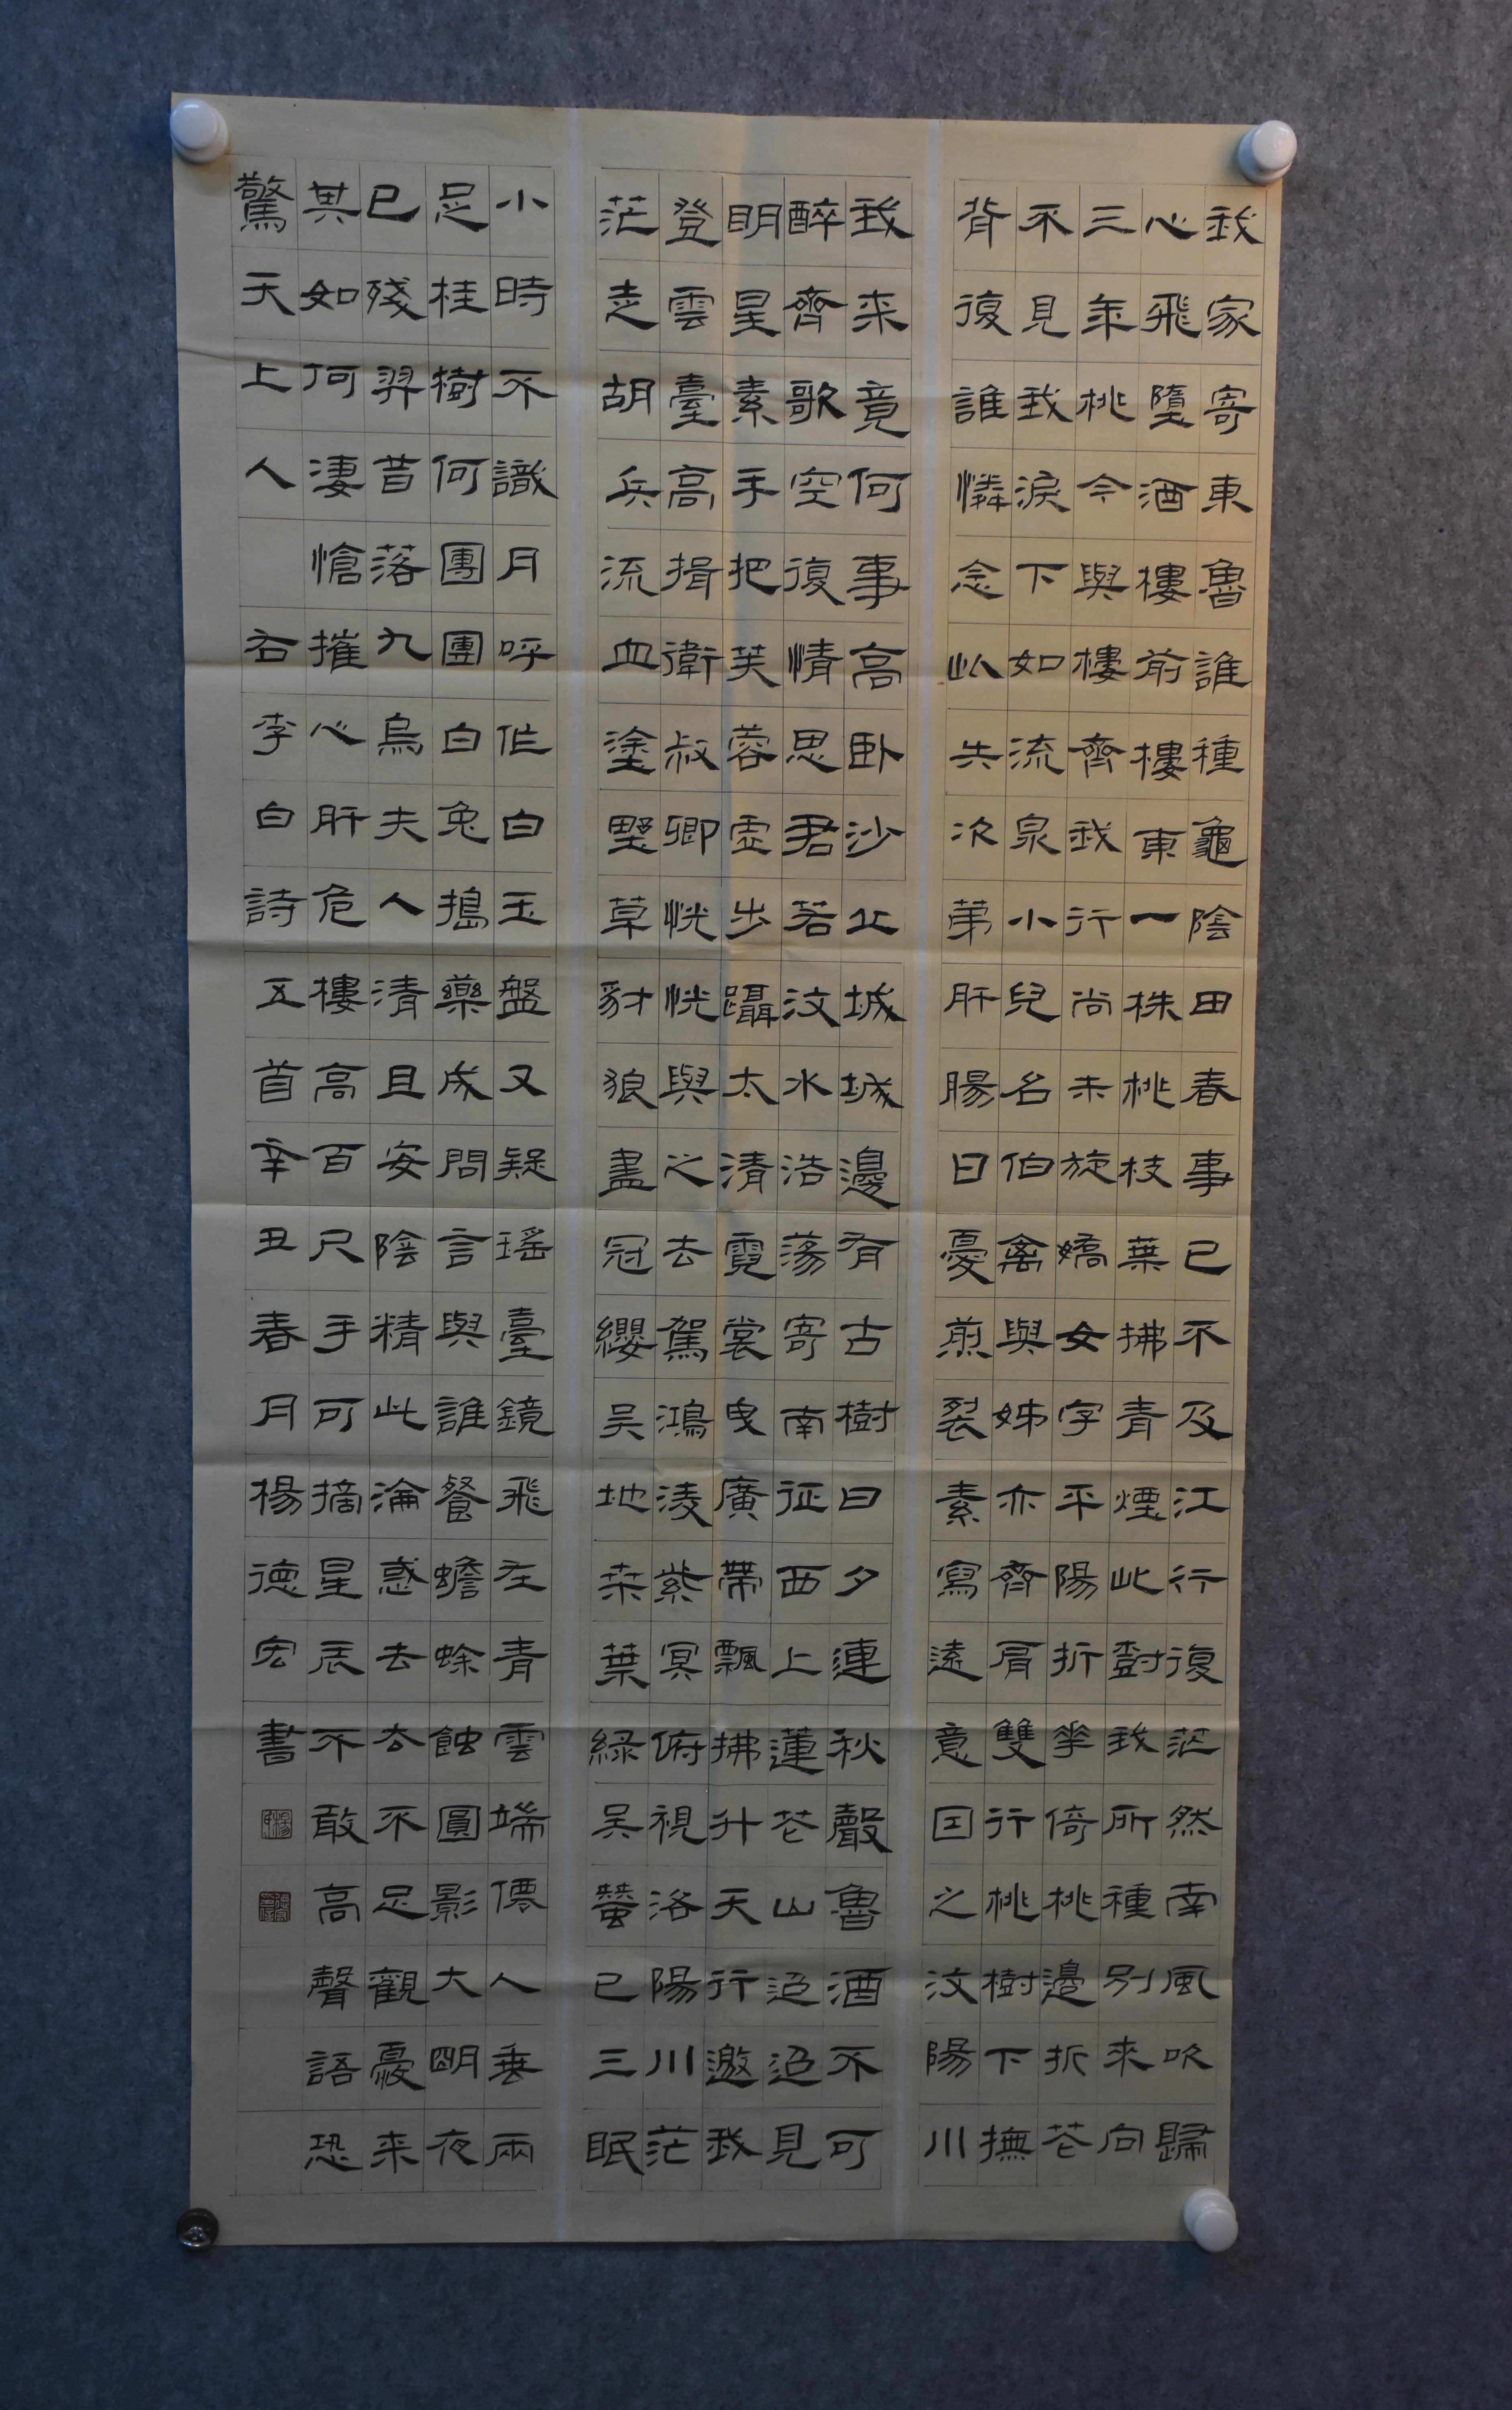 我家寄東魯誰種龜陰田春事已不及江行復茫然南風吹歸
心飛墮酒樓前樓東一株桃枝葉拂青煙此對我所種別來向
三年桃今與樓齊我行尚未旋嬌女字平陽折華倚桃邊折花
不見我淚下如流泉小兒名伯禽與姊亦齊肩雙行桃樹下撫
背復誰憐念此失次第肝腸日憂煎裂素寫遠意因之汶陽川
我来竟何事高卧沙丘城城邊有古樹日夕連秋聲魯酒不可
醉齊歌空復情思君若汶水浩蕩寄南征西上蓮花山迢迢見
明星素手把芙蓉虛步躡太清霓裳曳廣帶飄拂升天行邀我
登雲臺高揖衛叔卿恍恍與之去駕鴻凌紫冥俯視洛陽川茫
茫走胡兵流血塗野草豺狼盡冠纓吳地桑葉綠吳蠶已三眠
小時不識月呼作白玉盤又疑瑤臺鏡飛在青雲端僊人垂兩
足桂樹何團團白兔搗藥成問言與誰餐蟾蜍蝕圓影大明夜
已殘羿昔落九烏夫人清且安陰精此淪惑去去不足觀憂来
其如何凄愴摧心肝危樓高百尺手可摘星辰不敢高聲語恐
驚天上人 右李白詩五首辛丑春月楊德宏書